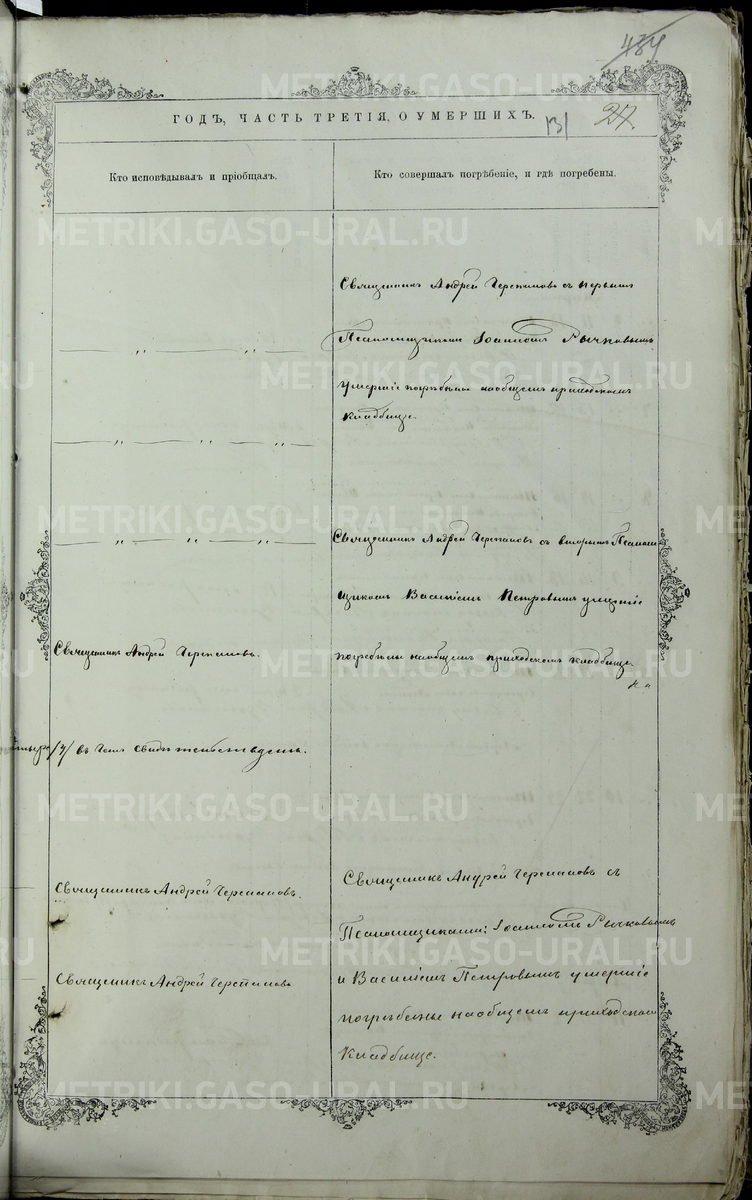 484
ГОДЪ, ЧАСТЬ ТРЕТІЯ, О УМЕРШИХЪ.
131
27.
Кто исповѣдывалъ и пріобщалъ.
Кто совершалъ погрѣбеніе, и гдѣ погребены.
Священникъ Андрей Черепановъ съ первымъ
Псаломщикомъ Іоанномъ Рычковымъ
умершіе погребены наобщемъ приходскомъ
кладбище.
Священникъ Андрей Черепановъ съ вторымъ Псалом
щикомъ Василіемъ Петровымъ умершіе
погребены наобщемъ приходскомъ кладбище.
Священникъ Андрей Черепановъ.
/4/ въ чемъ свидѣтельствуемъ.
Священникъ Андрей Черепановъ.
Священникъ Андрей Черепановъ
Священникъ Андрей Черепановъ съ
Псаломщиками: Іоанномъ Рычковымъ
и Василіемъ Петровымъ умершіе
погребены наобщемъ приходскомъ
кладбище.
METRIKI.GASO-URAL.RU